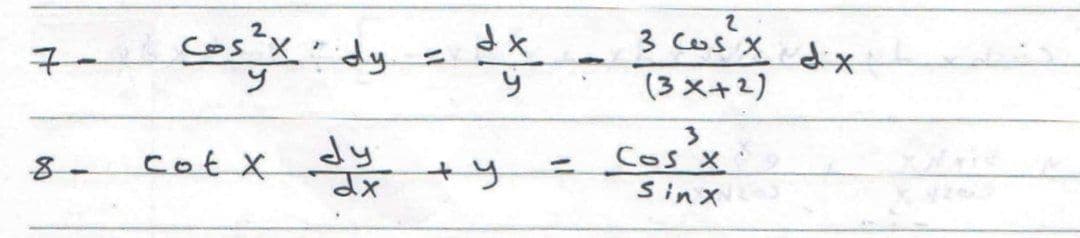 7 - cos²x/y · dy = dx/y - 3 cos²x/(3x+2) dx
8 - cot x dy/dx + y = cos³x/sin x